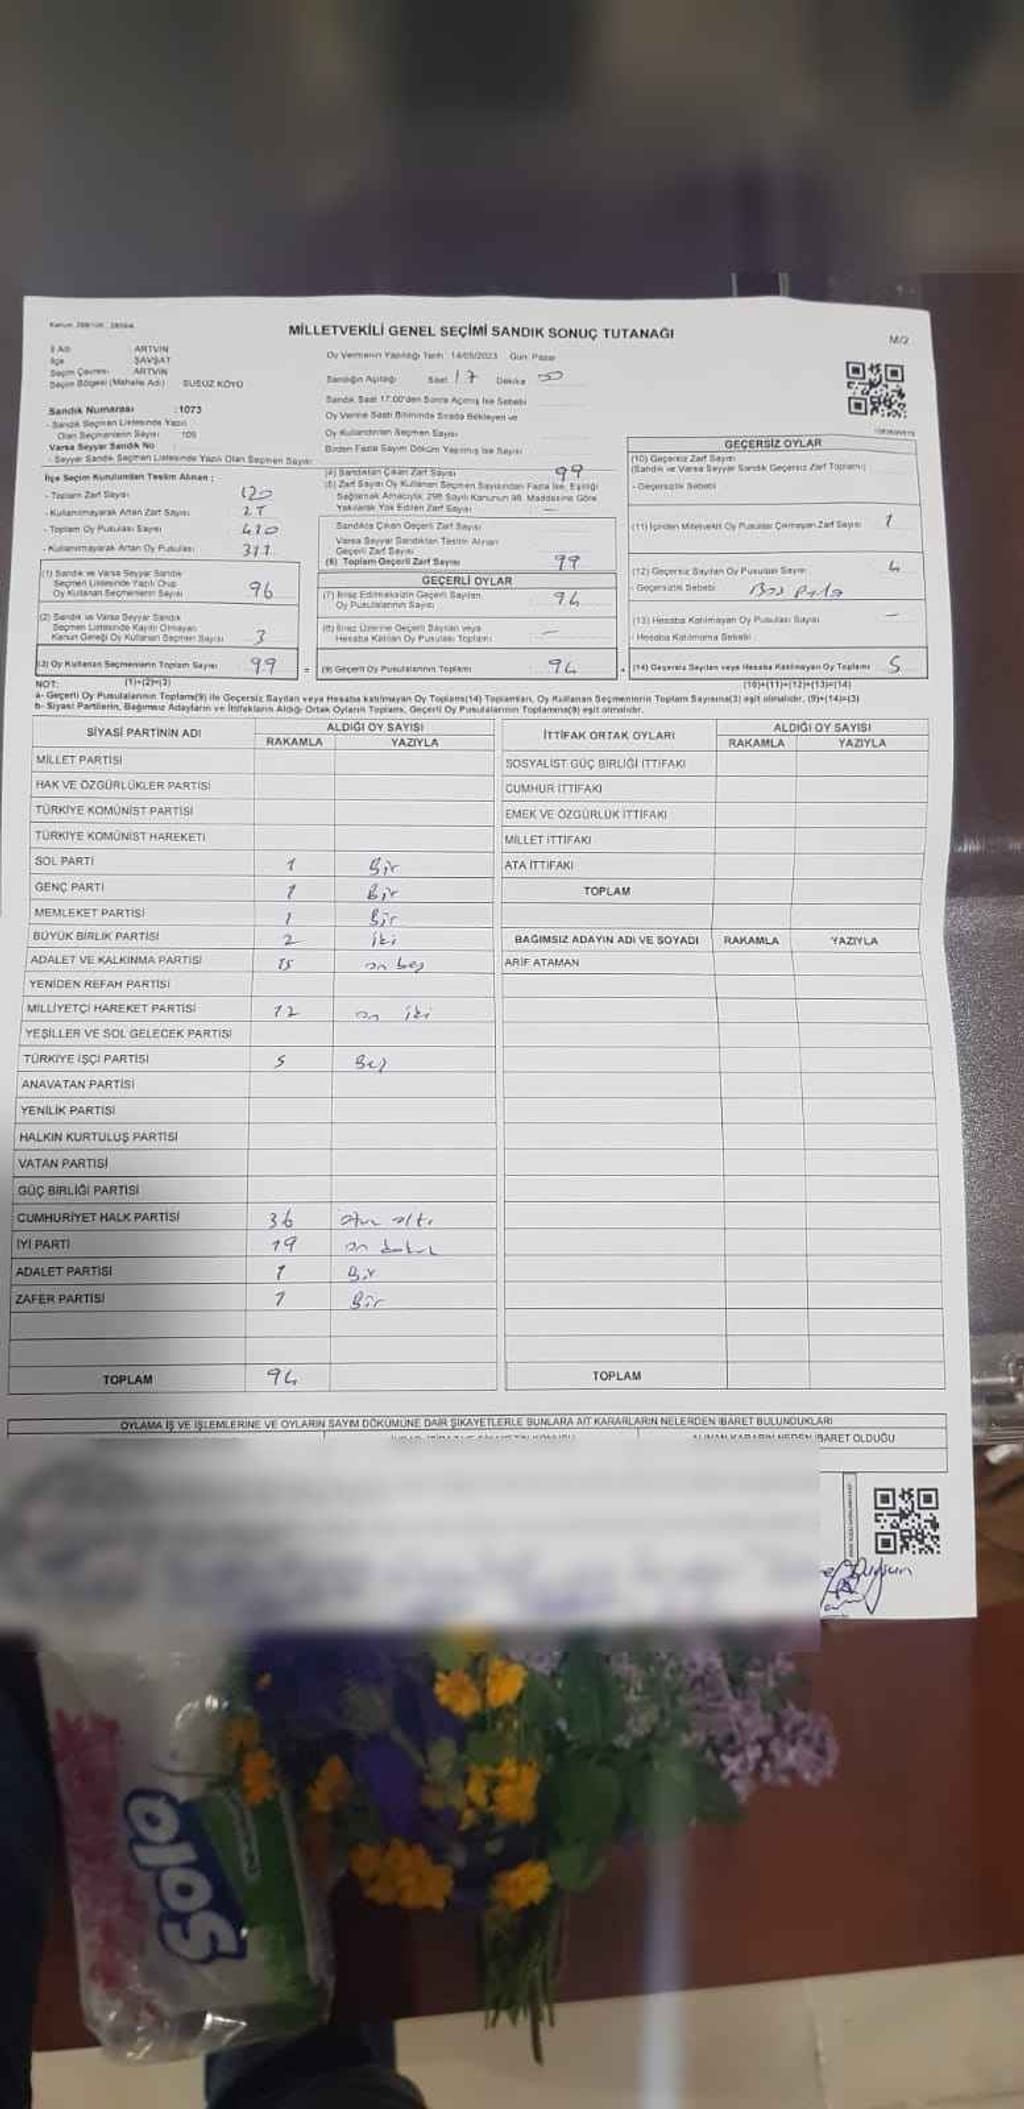 MİLLETVEKİLİ GENEL SEÇİMİ SANDIK SONUÇ TUTANAĞI
M/2
İl Adı ARTVİN
İlçe ŞAVŞAT
Seçim Çevresi ARTVİN
Seçim Bölgesi (Mahalle Adı) SUSUZ KÖYÜ
Sandık Numarası : 1073
- Sandık Seçmen Listesinde Yazılı
Olan Seçmenlerin Sayısı : 105
Varsa Seyyar Sandık No
- Seyyar Sandık Seçmen Listesinde Yazılı Olan Seçmen Sayısı
Oy Vermenin Yapıldığı Tarih : 14/05/2023 Gün: Pazar
Sandığın Açılışı Saat 17 Dakika 50
Sandık Saat 17:00'den Sonra Açılmış İse Sebebi
Oy Verme Saati Bitiminde Sırada Bekleyen ve
Oy Kullandırılan Seçmen Sayısı
Birden Fazla Sayım Döküm Yapılmış İse Sayısı
İlçe Seçim Kurulundan Teslim Alınan :
- Toplam Zarf Sayısı 120
- Kullanılmayarak Artan Zarf Sayısı 21
- Toplam Oy Pusulası Sayısı 410
- Kullanılmayarak Artan Oy Pusulası 311
(1) Sandık ve Varsa Seyyar Sandık
Seçmen Listesinde Yazılı Olup
Oy Kullanan Seçmenlerin Sayısı 96
(2) Sandık ve Varsa Seyyar Sandık
Seçmen Listesinde Kayıtlı Olmayan
Kanun Gereği Oy Kullanan Seçmen Sayısı 3
(3) Oy Kullanan Seçmenlerin Toplam Sayısı 99
(4) Sandıktan Çıkan Zarf Sayısı 99
(5) Zarf Sayısı Oy Kullanan Seçmen Sayısından Fazla İse, Eşitliği
Sağlamak Amacıyla, 298 Sayılı Kanunun 98. Maddesine Göre
Yakılarak Yok Edilen Zarf Sayısı —
Sandıkta Çıkan Geçerli Zarf Sayısı
Varsa Seyyar Sandıktan Teslim Alınan
Geçerli Zarf Sayısı
(6) Toplam Geçerli Zarf Sayısı 99
GEÇERLİ OYLAR
(7) İtiraz Edilmeksizin Geçerli Sayılan
Oy Pusulalarının Sayısı 94
(8) İtiraz Üzerine Geçerli Sayılan veya
Hesaba Katılan Oy Pusulası Toplamı —
(9) Geçerli Oy Pusulalarının Toplamı 94
GEÇERSİZ OYLAR
(10) Geçersiz Zarf Sayısı
(Sandık ve Varsa Seyyar Sandık Geçersiz Zarf Toplamı)
- Geçersizlik Sebebi
(11) İçinden Milletvekili Oy Pusulası Çıkmayan Zarf Sayısı 1
(12) Geçersiz Sayılan Oy Pusulası Sayısı 4
- Geçersizlik Sebebi
(13) Hesaba Katılmayan Oy Pusulası Sayısı —
- Hesaba Katılmama Sebebi
(14) Geçersiz Sayılan veya Hesaba Katılmayan Oy Toplamı 5
NOT: (1)+(2)=(3) (10)+(11)+(12)+(13)=(14)
a- Geçerli Oy Pusulalarının Toplamı(9) ile Geçersiz Sayılan veya Hesaba katılmayan Oy Toplamı(14) Toplamları, Oy Kullanan Seçmenlerin Toplam Sayısına(3) eşit olmalıdır. (9)+(14)=(3)
b- Siyasi Partilerin, Bağımsız Adayların ve İttifakların Aldığı Ortak Oyların Toplamı, Geçerli Oy Pusulalarının Toplamına(9) eşit olmalıdır.
SİYASİ PARTİNİN ADI ALDIĞI OY SAYISI
RAKAMLA YAZIYLA
MİLLET PARTİSİ
HAK VE ÖZGÜRLÜKLER PARTİSİ
TÜRKİYE KOMÜNİST PARTİSİ
TÜRKİYE KOMÜNİST HAREKETİ
SOL PARTİ 1 Bir
GENÇ PARTİ 1 Bir
MEMLEKET PARTİSİ 1 Bir
BÜYÜK BİRLİK PARTİSİ 2 iki
ADALET VE KALKINMA PARTİSİ 15 on beş
YENİDEN REFAH PARTİSİ
MİLLİYETÇİ HAREKET PARTİSİ 12 on iki
YEŞİLLER VE SOL GELECEK PARTİSİ
TÜRKİYE İŞÇİ PARTİSİ 5 Beş
ANAVATAN PARTİSİ
YENİLİK PARTİSİ
HALKIN KURTULUŞ PARTİSİ
VATAN PARTİSİ
GÜÇ BİRLİĞİ PARTİSİ
CUMHURİYET HALK PARTİSİ 36 otuz altı
İYİ PARTİ 19 on dokuz
ADALET PARTİSİ 1 Bir
ZAFER PARTİSİ 1 Bir
TOPLAM 94
İTTİFAK ORTAK OYLARI ALDIĞI OY SAYISI
RAKAMLA YAZIYLA
SOSYALİST GÜÇ BİRLİĞİ İTTİFAKI
CUMHUR İTTİFAKI
EMEK VE ÖZGÜRLÜK İTTİFAKI
MİLLET İTTİFAKI
ATA İTTİFAKI
TOPLAM
BAĞIMSIZ ADAYIN ADI VE SOYADI RAKAMLA YAZIYLA
ARİF ATAMAN
TOPLAM
OYLAMA İŞ VE İŞLEMLERİNE VE OYLARIN SAYIM DÖKÜMÜNE DAİR ŞİKAYETLERLE BUNLARA AİT KARARLARIN NELERDEN İBARET BULUNDUKLARI
ALINAN KARARIN NEDEN İBARET OLDUĞU
Solo